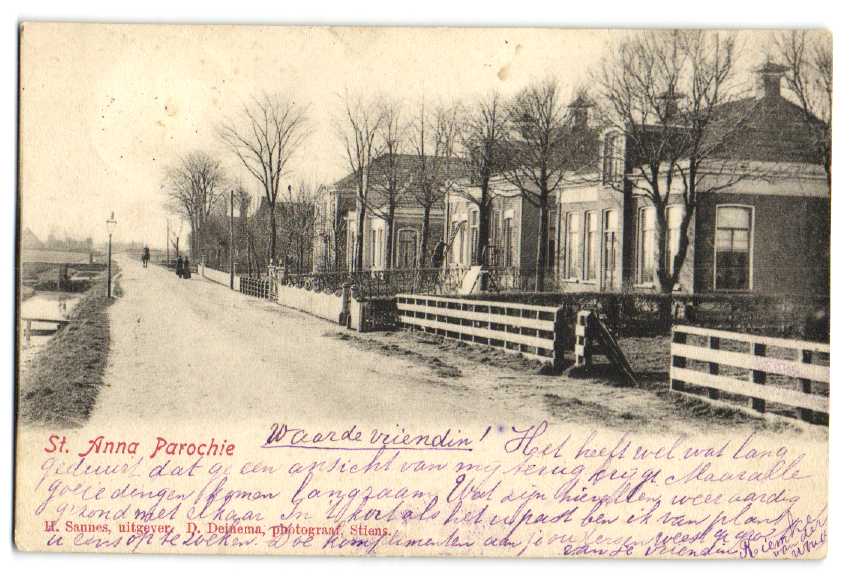 St. Anna Parochie
Waarde vriendin! Het heeft wel wat lang
geduurt dat ge een ansicht van mij terug krijgt Maar alle
goeje dingen komen langzaam. Wat zijn hier allen weer aardig
gezond met elkaar In 't kort als het u past ben ik van plan
H. Sannes, uitgever. D. Deinema, photograaf, Stiens.
u eens op te zoeken. Doe komplimenten aan je ouders en weest gegroet
van je vriendin